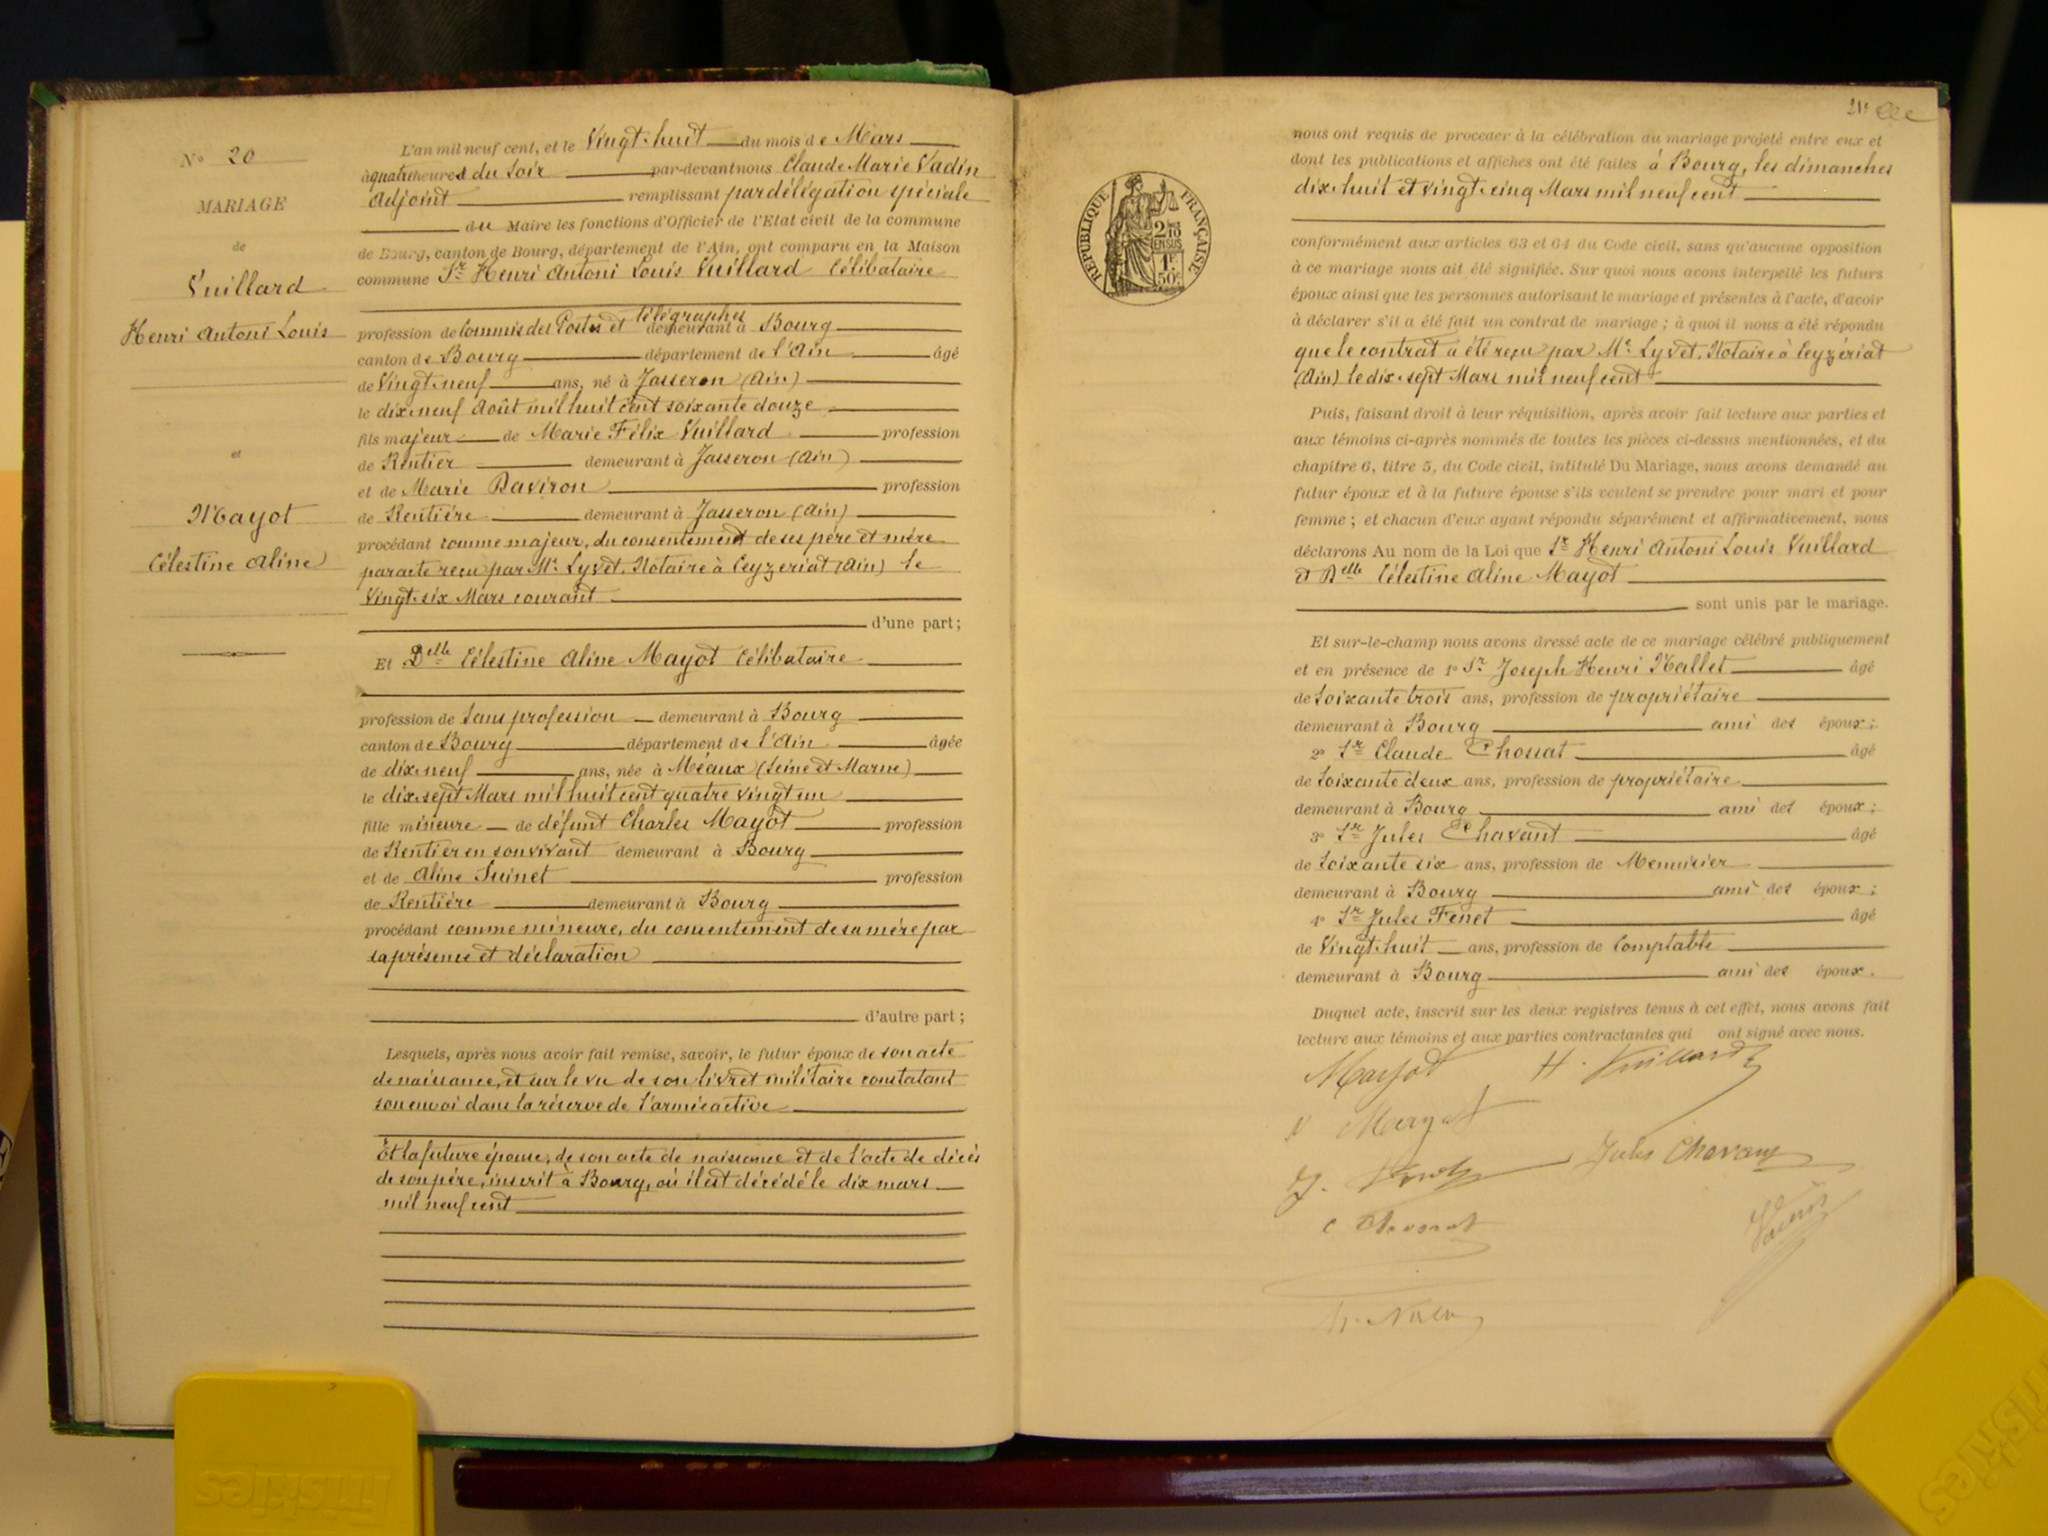 N° 20
MARIAGE
de
Vuillard
Henri Antoni Louis
et
Mayot
Célestine Aline
L'an mil neuf cent, et le Vingt-huit du mois de Mars
à quatre heures du Soir par-devant nous Claude Marie Vadin
Adjoint remplissant par délégation spéciale
du Maire les fonctions d'Officier de l'Etat civil de la commune
de Bourg, canton de Bourg, département de l'Ain, ont comparu en la Maison
commune Sr Henri Antoni Louis Vuillard Célibataire
profession de Commis des Postes et télégraphes demeurant à Bourg
canton de Bourg département de l'Ain âgé
de Vingt-neuf ans, né à Jasseron (Ain)
le dix-neuf Août mil huit cent soixante douze
fils majeur de Marie Félix Vuillard profession
de Rentier demeurant à Jasseron (Ain)
et de Marie Daviron profession
de Rentière demeurant à Jasseron (Ain)
procédant comme majeur, du consentement de ses père et mère
par acte reçu par Me Lyvet, Notaire à Ceyzeriat (Ain) le
Vingt-six Mars courant
d'une part;
Et Delle Célestine Aline Mayot Célibataire
profession de Sans profession demeurant à Bourg
canton de Bourg département de l'Ain âgée
de dix-neuf ans, née à Méaux (Seine et Marne)
le dix-sept Mars mil huit cent quatre vingt un
fille mineure de défunt Charles Mayot profession
de Rentier en son vivant demeurant à Bourg
et de Aline Suinet profession
de Rentière demeurant à Bourg
procédant comme mineure, du consentement de sa mère par
sa présence et déclaration
d'autre part;
Lesquels, après nous avoir fait remise, savoir, le futur époux de son acte
de naissance, et sur le vu de son livret militaire constatant
son envoi dans la réserve de l'armée active
Et la future épouse, de son acte de naissance et de l'acte de décès
de son père, inscrit à Bourg, où il est décédé le dix mars
mil neuf cent
21e
RÉPUBLIQUE FRANÇAISE
2/10 EN SUS
1F 50c
nous ont requis de procéder à la célébration du mariage projeté entre eux et
dont les publications et affiches ont été faites à Bourg, les dimanches
dix-huit et vingt-cinq Mars mil neuf cent
conformément aux articles 63 et 64 du Code civil, sans qu'aucune opposition
à ce mariage nous ait été signifiée. Sur quoi nous avons interpellé les futurs
époux ainsi que les personnes autorisant le mariage et présentes à l'acte, d'avoir
à déclarer s'il a été fait un contrat de mariage; à quoi il nous a été répondu
que le contrat a été reçu par Me Lyvet, Notaire à Ceyzériat
(Ain) le dix-sept Mars mil neuf cent
Puis, faisant droit à leur réquisition, après avoir fait lecture aux parties et
aux témoins ci-après nommés de toutes les pièces ci-dessus mentionnées, et du
chapitre 6, titre 5, du Code civil, intitulé Du Mariage, nous avons demandé au
futur époux et à la future épouse s'ils veulent se prendre pour mari et pour
femme; et chacun d'eux ayant répondu séparément et affirmativement, nous
déclarons Au nom de la Loi que Sr Henri Antoni Louis Vuillard
et Delle Célestine Aline Mayot
sont unis par le mariage.
Et sur-le-champ nous avons dressé acte de ce mariage célébré publiquement
et en présence de 1° Sr Joseph Henri Nallet âgé
de Soixante trois ans, profession de propriétaire
demeurant à Bourg ami des époux;
2° Sr Claude Chossat âgé
de Soixante deux ans, profession de propriétaire
demeurant à Bourg ami des époux;
3° Sr Jules Chavant âgé
de Soixante six ans, profession de Menuisier
demeurant à Bourg ami des époux;
4° Sr Jules Fenet âgé
de Vingt-huit ans, profession de Comptable
demeurant à Bourg ami des époux.
Duquel acte, inscrit sur les deux registres tenus à cet effet, nous avons fait
lecture aux témoins et aux parties contractantes qui ont signé avec nous.
Mayot H. Vuillard
Mayot
Jules Chavant
C Chossat
Vadin
friskies
friskies